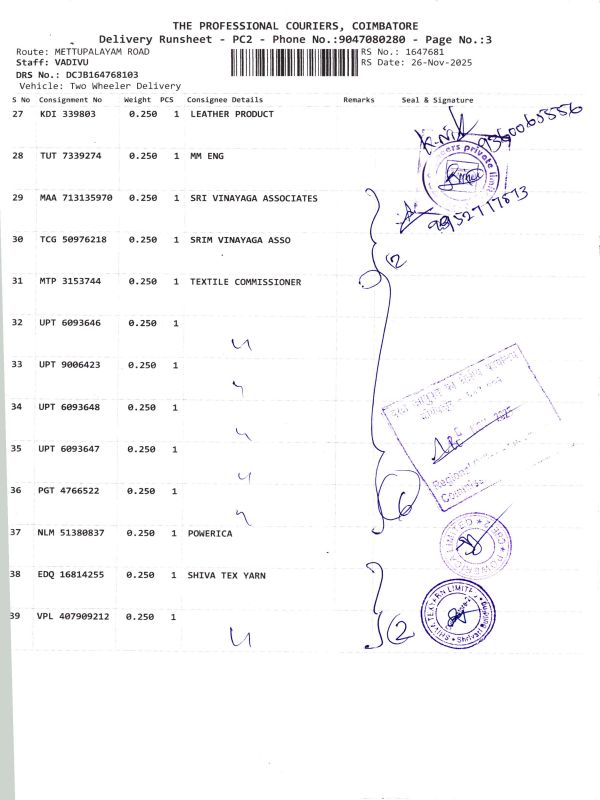 THE PROFESSIONAL COURIERS, COIMBATORE
Delivery Runsheet - PC2 - Phone No.:9047080280 - Page No.:3
Route: METTUPALAYAM ROAD
RS No.: 1647681
Staff: VADIVU
RS Date: 26-Nov-2025
DRS No.: DCJB164768103
Vehicle: Two Wheeler Delivery
S No Consignment No Weight PCS Consignee Details Remarks Seal & Signature
27 KDI 339803 0.250 1 LEATHER PRODUCT
9360065556
28 TUT 7339274 0.250 1 MM ENG
29 MAA 713135970 0.250 1 SRI VINAYAGA ASSOCIATES
9952717873
30 TCG 50976218 0.250 1 SRIM VINAYAGA ASSO
2
31 MTP 3153744 0.250 1 TEXTILE COMMISSIONER
32 UPT 6093646 0.250 1
33 UPT 9006423 0.250 1
34 UPT 6093648 0.250 1
35 UPT 6093647 0.250 1
Regional
36 PGT 4766522 0.250 1
6
37 NLM 51380837 0.250 1 POWERICA
POWERICA LIMITED
38 EDQ 16814255 0.250 1 SHIVA TEX YARN
39 VPL 407909212 0.250 1
2
SHIVA TEXYARN LIMITED